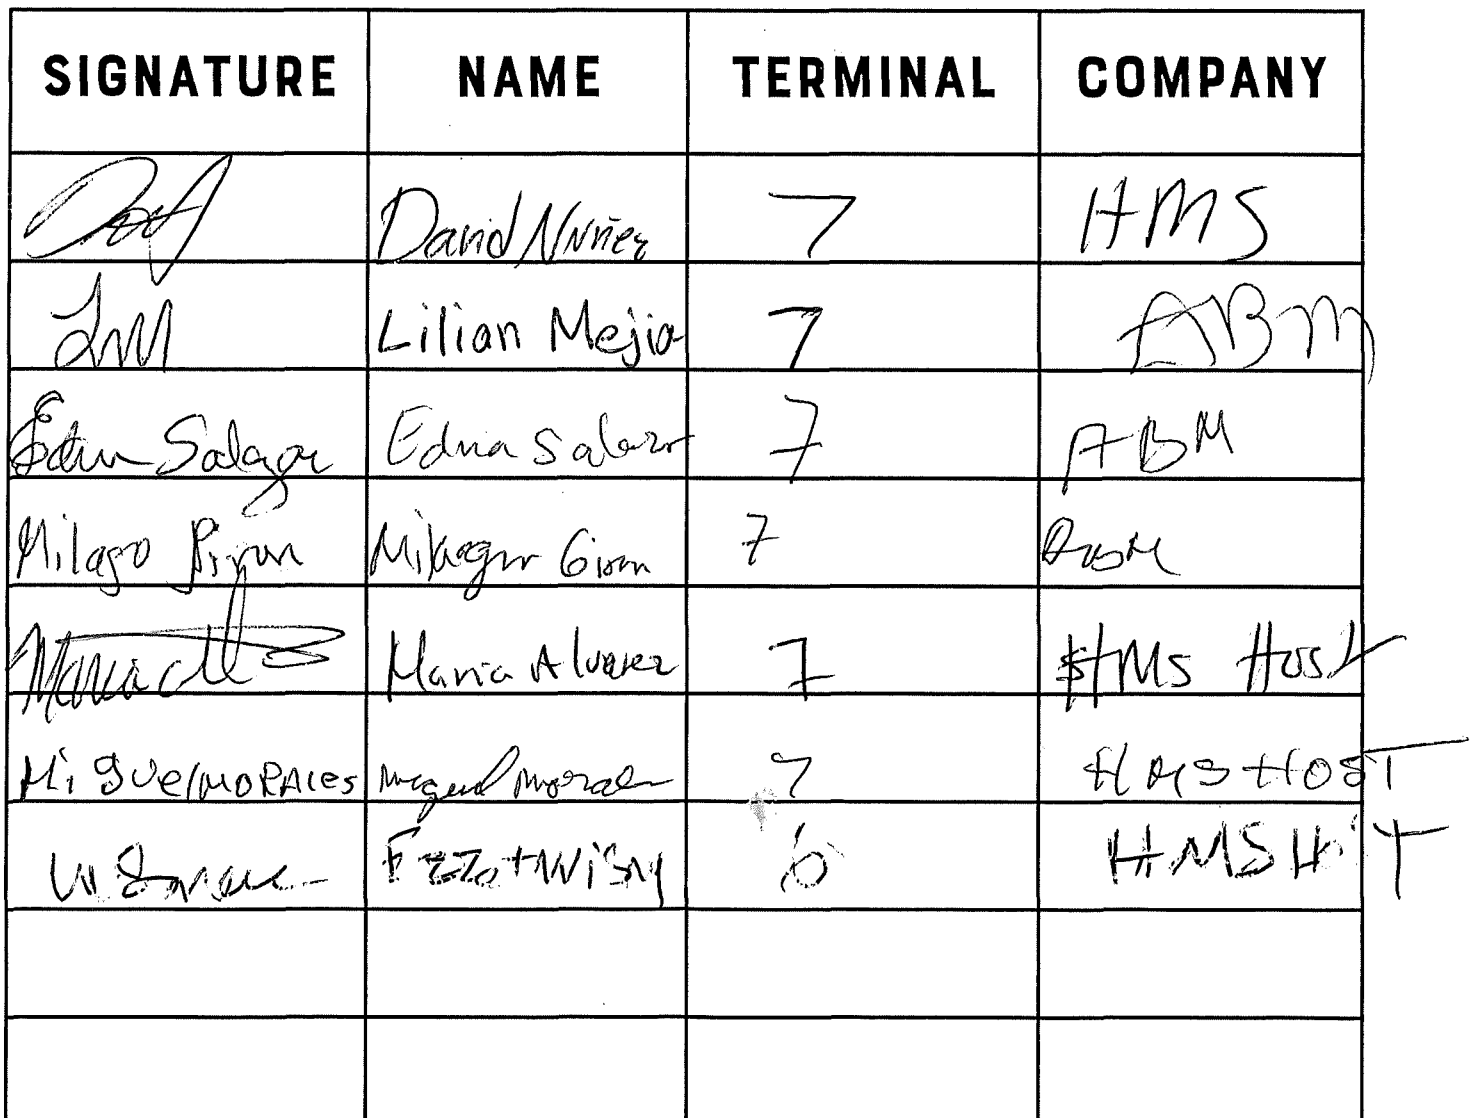 SIGNATURE NAME TERMINAL COMPANY
David Nuñez 7 HMS
LM Lilian Mejia 7 ABM
Edna Salazar Edna Salazar 7 ABM
Milagro Giron Milagro Giron 7 ABM
Maria Maria Alvarez 7 HMS Host
Miguel MORAles Miguel Morales 7 HMSHOST
6 HMSH